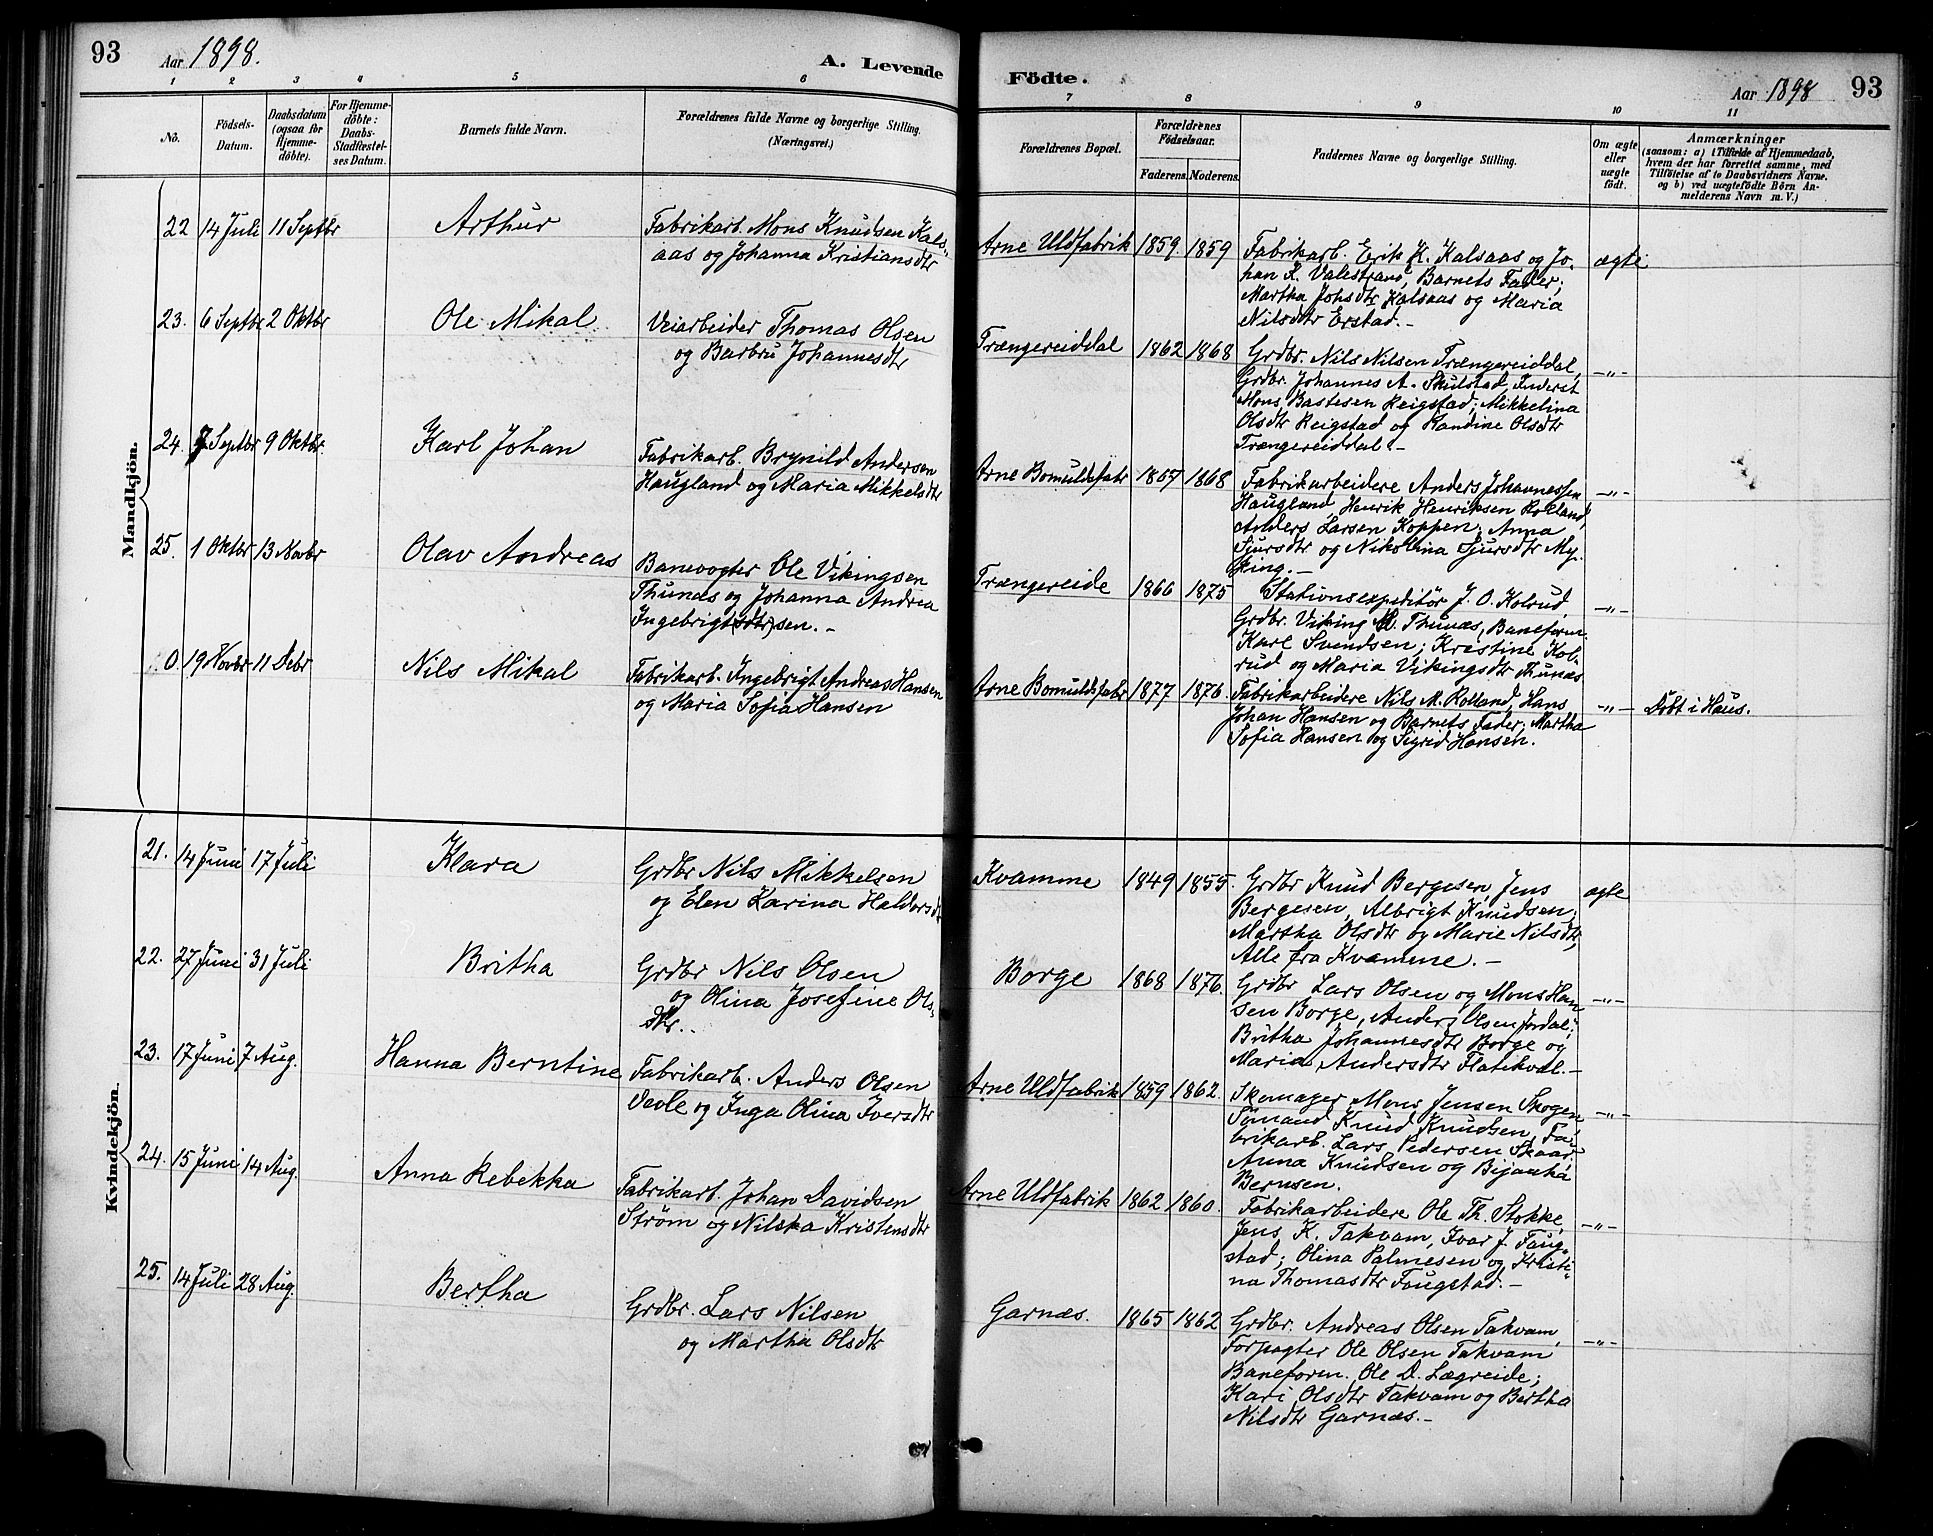 93 Aar 1898. A. Levende
1 2 3 4 5 6
No. Födsels-Datum. Daabsdatum (ogsaa for Hjemme-döbte). For Hjemme-döbte: Daabs-Stadfæstel-ses Datum. Barnets fulde Navn. Forældrenes fulde Navne og borgerlige Stilling. (Næringsvei.)
Mandkjön.
22 14 Juli 11 Septbr Arthur Fabrikarb. Mons Knudsen Kals-
aas og Johanna Kristiansdtr
23. 6 Septbr 2 Oktbr Ole Mikal Veiarbeider Thomas Olsen
og Barbru Johannesdtr
24. 7 Septbr 9 Oktbr. Karl Johan Fabrikarb. Brynild Andersen
Haugland og Maria Mikkelsdtr
25. 1 Oktbr 13 Novbr Olav Andreas Banevogter Ole Vikingsen
Thunæs og Johanna Andrea
Ingebrigt(sdtr)sen. -
0. 19 Novbr 11 Debr Nils Mikal Fabrikarb. Ingebrigt Andreas Hansen
og Maria Sofia Hansen
Kvindekjön.
21. 14 Juni 17 Juli Klara Grdbr Nils Mikkelsen
og Elen Karina Haldorsdt
22. 27 Juni 31 Juli Britha Grdbr Nils Olsen
og Olina Josefine Ols-
dtr.
23. 17 Juni 7 Aug. Hanna Berntine Fabrikarb. Anders Olsen
Devle og Inga Olina Iversdtr
24. 15 Juni 14 Aug. Anna Rebekka Fabrikarb. Johan Davidsen
Strøm og Nilska Kristensdtr
25. 14 Juli 28 Aug. Bertha Grdbr. Lars Nilsen
og Martha Olsdtr
Födte. Aar 1898 93
7 8 9 10 11
Forældrenes Bopæl. Forældrenes Födselsaar. Faderens. Moderens. Faddernes Navne og borgerlige Stilling. Om ægte eller uægte födt. Anmærkninger
(saasom: a) i Tilfælde af Hjemmedaab,
hvem der har forrettet samme, med
Tilföielse af to Daabsvidners Navne.
og b) ved uægtefödte Börn An-
melderens Navn m. V.)
Arne Uldfabrik 1859. 1859 Fabrikarb. Erik K. Kalsaas og Jo- ægte
han K. Valestrand, Barnets Fader;
Martha Johsdtr Kalsaas og Maria
Nilsdtr Erstad. -
Trængereiddal 1862 1868 Grdbr. Nils Nilsen Trængereiddal, -"-
Grdbr. Johannes A. Skulstad, Inderst
Mons Bastesen Reigstad; Mikkelina
Olsdtr Reigstad og Randine Olsdtr
Trængereiddal. -
Arne Bomuldsfabr 1867 1868 Fabrikarbeidere Anders Johannessen -"-
Haugland, Henrik Henriksen Rolland,
Anders Larsen Koppen; Anna
Sjursdtr og Nikolina Sjursdtr My-
king. -
Trængereide 1866 1875 Stationsexpeditör J. O. Kolrud -"-
Grdbr. Viking M. Thunæs, Baneform.
Karl Svendsen; Kristine Kol-
rud og Maria Vikingsdtr Thunæs
Arne Bomuldsfabr 1877 1876. Fabrikarbeidere Nils M. Rolland, Hans -"- Döbt i Haus.
Johan Hansen og Barnets Fader; Martha
Sofia Hansen og Sigrid Hansen.
Kvamme 1849 1855. Grdbr Knud Bergesen, Jens ægte
Bergesen, Albrigt Knudsen;
Martha Olsdtr og Marie Nilsdtr,
Alle fra Kvamme. -
Borge 1868 1876. Grdbr Lars Olsen og Mons Han- -"-
sen Borge, Anders Olsen Jordal;
Britha Johannesdtr Borge og
Maria Andersdtr Flatekval. -
Arne Uldfabrik 1859 1862. Skomager Mons Jensen Skogen -"-
Sömand Knud Knudsen, Fa-
brikarb. Lars Pedersen Skaar;
Anna Knudsen og
Bernsen.
Arne Uldfabrik 1862 1860. Fabrikarbeidere Ole Th. Stokke, -"-
Jens K. Takvam, Ivar J. Faug-
stad; Olina Palmesen og Kristi-
na Thomasdtr Faugstad. -
Garnæs. 1865 1862 Grdbr. Andreas Olsen Takvam -"-
Forpagter Ole Olsen Takvam
Baneform. Ole D. Lægreide;
Kari Olsdtr Takvam og Bertha
Nilsdtr Garnæs. -